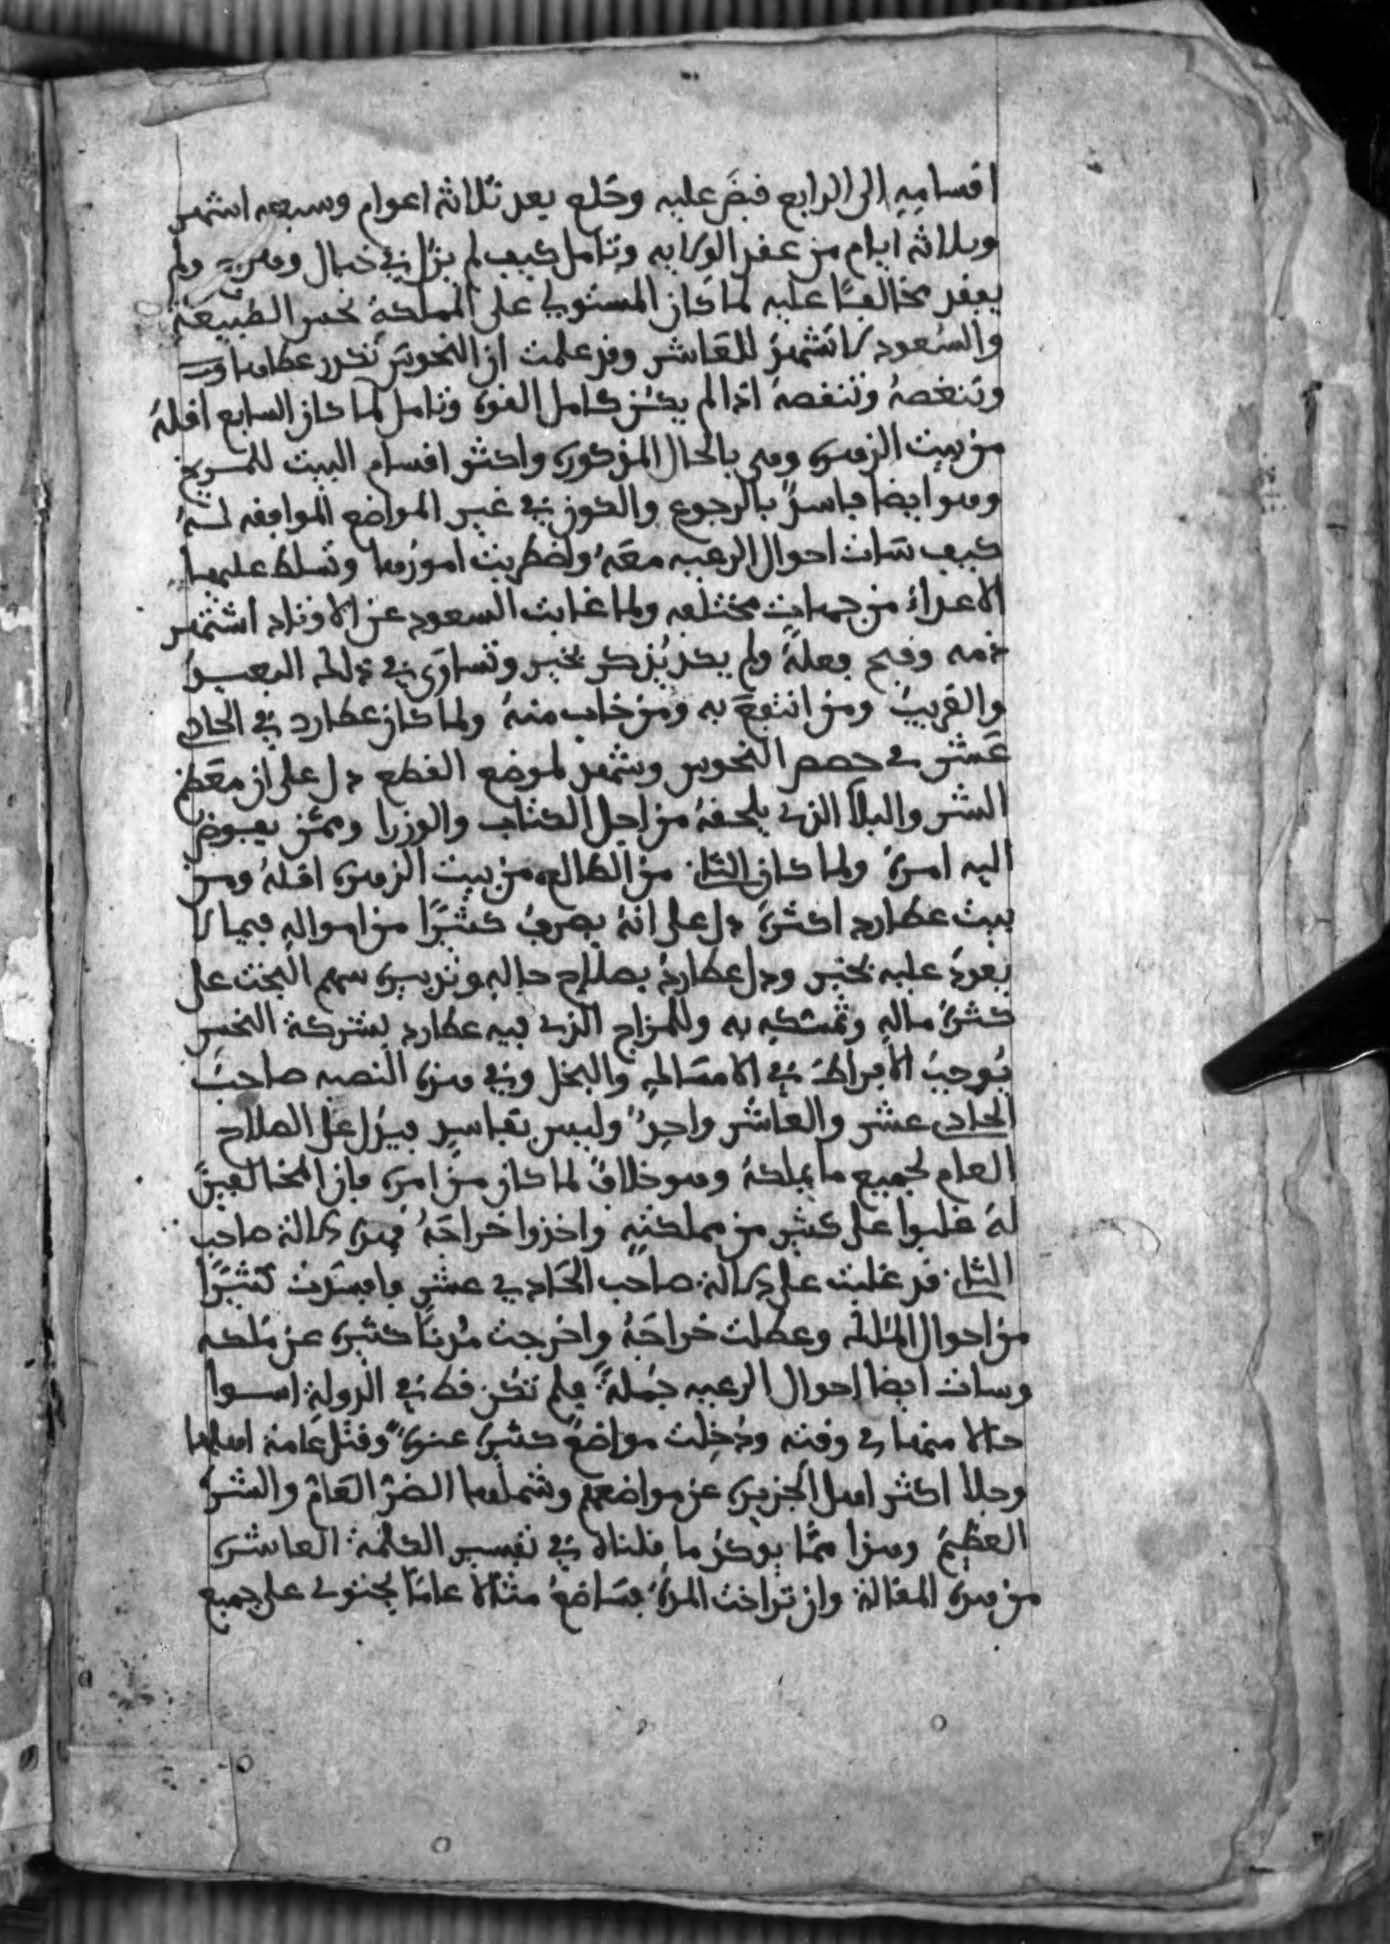 اقسامه الى الرابع قبض عليه وخلع بعد ثلاثة اعوام وسبعه اشهر
وثلاثة ايام من عقد الولايه وتامل كيف لم يزل في خبال ولم
يفقد مخالفًا عليه لما كان المستولي على المملكة نحس الطبيعة
والسعود لا تشهد للعاشر وقد علمت ان النحوس تكدر عطاها
وتنغصهُ وتنقصهُ اذا لم يكن كامل القوة وتامل لما كان السابع اقلهُ
من بيت الزهرة وهي بالحال المذكورة واكثر اقسام البيت للمريخ
وهو ايضا فاسدٌ بالرجوع والكون في غير المواضع الموافقه لهُ
كيف سات احوال الرعيه معهُ واضطربت امورها وتسلط عليها
الاعداءُ من جهاتٍ مختلفه ولما غابت السعود عن الاوتاد اشتهر
ذمه وقبح فعلهُ ولم يكد يذكر بخير وتساوى في ذلك البعيد
والقريبُ ومن انتفعَ به ومن خاب منهُ ولما كان عطارد في الحادي
عَشر في حصص النحوس وشهد لموضع القطع دل على ان معظم
الشر والبلا الذي يلحقهُ من اجل الكتاب والوزرا وممن يفوض
اليه امرهُ ولما كان الثاني من الطالع من بيت الزهرة اقلهُ ومن
بيت عطارد اكثرهُ دل على انهُ يصرفُ كثيرًا من امواله فيما لا
يعودُ عليه بخير ودل عطاردُ بصلاح حاله وتدبيره سهم البخت على
كثرة ماله وتمسكه به وللمزاج الذي فيه عطارد بشركة النحس
يُوجبُ الافراطَ في الامساك والبخل وفي هذه النصبه صاحبُ
الحادي عشر والعاشر واحدٌ وليس بفاسد فيدل على الصلاح
العام لجميع ما يملكهُ وهو خلافُ لما كان من امره فان المخالفين
لهُ غلبوا على كثيرٍ من مملكته واخذوا خراجَهُ فهذه دلالة صاحب
الثاني قد غلبت على دلالة صاحب الحادي عشر وافسدت كثيرًا
من احوال الملك وعطلت خراجَهُ واخرجت مُدنًا كثيرة عن ملكه
وسات ايضا احوال الرعيه جُملةً فلم تكن قط في الدولة اسوا
حالا منها في وقته ودُخلت مواضعُ كثيرة عنوةً وقتل عامة اهلها
وجلا اكثر اهل الجزيرة عن مواضعهم وشملها الضرّ العام والشرُّ
العظيمُ وهذا ممّا يوكدُ ما قلناه في تفسير الكلمة العاشرة
من هذه المقالة وان تراخت المدّة فسَاضعُ مثالا عامّا يحتوي على جميع